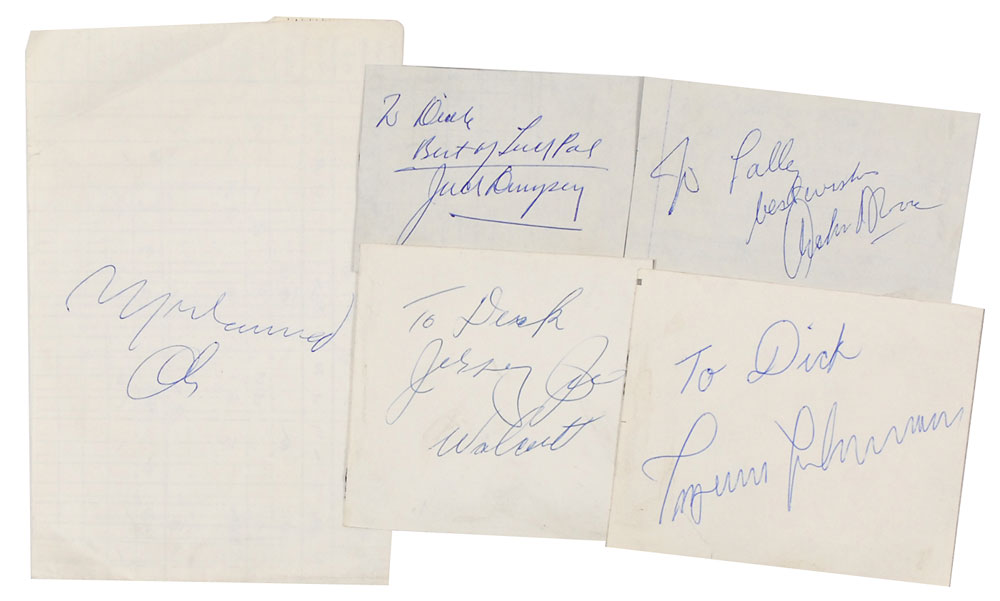 Muhammad
Ali
To Dick
Best of Luck Pal
Jack Dempsey
To
best wishes
Archie Moore
To Dick
Jersey Joe
Walcott
To Dick
Ingemar Johansson